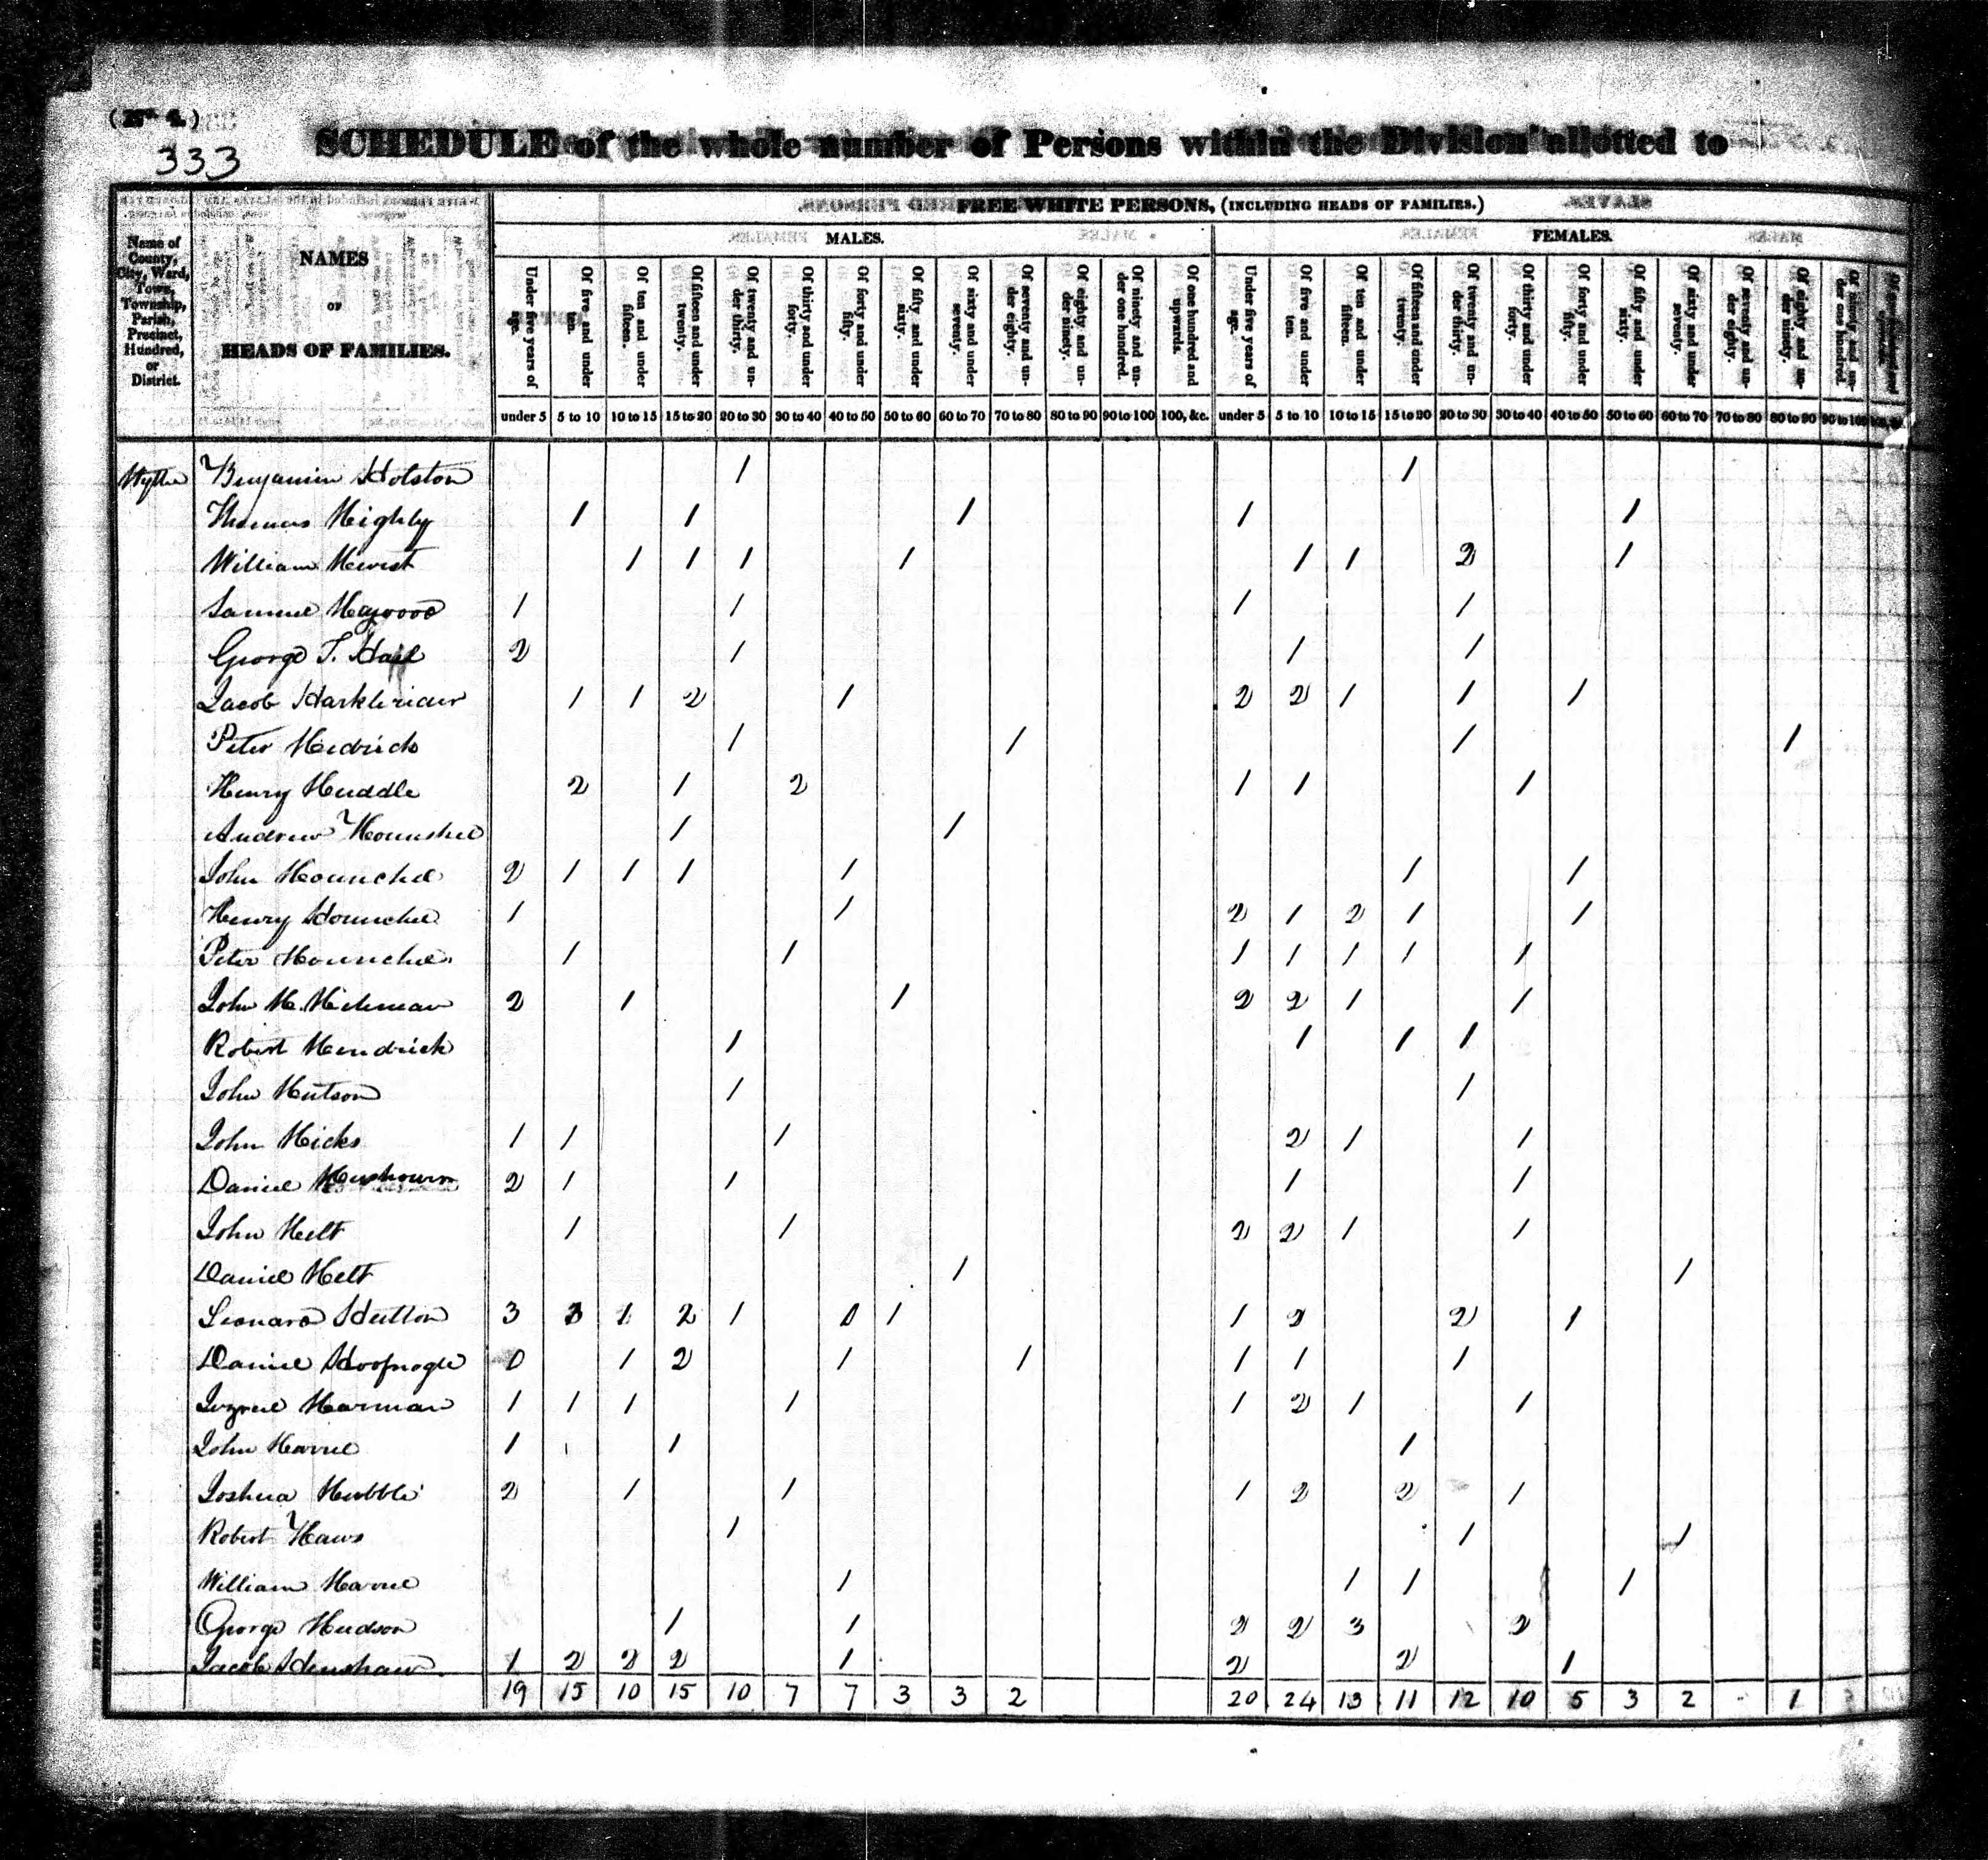 (No. 4.)
333
SCHEDULE of the whole number of Persons within the Division allotted to
FREE WHITE PERSONS, (INCLUDING HEADS OF FAMILIES.)
MALES. FEMALES.
Name of County, City, Ward, Town, Township, Parish, Precinct, Hundred, or District.
NAMES
OF
HEADS OF FAMILIES.
Under five years of age. Of five and under ten. Of ten and under fifteen. Of fifteen and under twenty. Of twenty and under thirty. Of thirty and under forty. Of forty and under fifty. Of fifty and under sixty. Of sixty and under seventy. Of seventy and under eighty. Of eighty and under ninety. Of ninety and under one hundred. Of one hundred and upwards. Under five years of age. Of five and under ten. Of ten and under fifteen. Of fifteen and under twenty. Of twenty and under thirty. Of thirty and under forty. Of forty and under fifty. Of fifty and under sixty. Of sixty and under seventy. Of seventy and under eighty. Of eighty and under ninety. Of ninety and under one hundred.
under 5 5 to 10 10 to 15 15 to 20 20 to 30 30 to 40 40 to 50 50 to 60 60 to 70 70 to 80 80 to 90 90 to 100 100, &c. under 5 5 to 10 10 to 15 15 to 20 20 to 30 30 to 40 40 to 50 50 to 60 60 to 70 70 to 80 80 to 90 90 to 100
Wythe Benjamin Holston 1 1
Thomas Highly 1 1 1 1 1
William Hurst 1 1 1 1 1 1 2 1
Samuel Haywood 1 1 1 1
George T. Hail 2 1 1 1
Jacob Harklerider 1 1 2 1 2 2 1 1 1
Peter Hedrick 1 1 1 1
Henry Huddle 2 1 2 1 1 1
Andrew Hounshel 1 1
John Hounchel 2 1 1 1 1 1 1
Henry Hounchel 1 1 2 1 2 1 1
Peter Hounchel 1 1 1 1 1 1 1
John H. Hickman 2 1 1 2 2 1 1
Robert Hendrick 1 1 1 1
John Hutson 1 1
John Hicks 1 1 1 2 1 1
Daniel 2 1 1 1 1
John Helt 1 1 2 2 1 1
Daniel Helt 1 1
Leonard Hutton 3 3 1 2 1 0 1 1 2 2 1
Daniel Hoofnogle 0 1 2 1 1 1 1 1
Harman 1 1 1 1 1 2 1 1
John Harvel 1 1 1
Joshua Hubble 2 1 1 1 2 2 1
Robert Haws 1 1 1
William Harvel 1 1 1 1
George Hudson 1 1 2 2 3 2
Jacob Henshaw 1 2 2 2 1 2 2 1
19 15 10 15 10 7 7 3 3 2 20 24 13 11 12 10 5 3 2 - 1